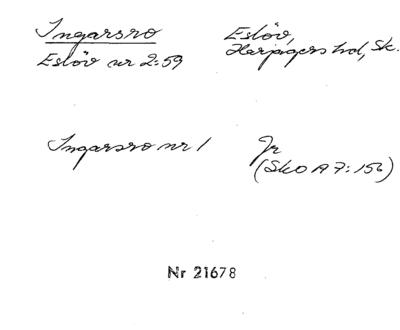 Ingarsro
Eslöv,
Eslöv nr 2:59
Harjagers hd, Sk.
Ingarsro nr 1
Jr
(SkO A 7:156)
Nr 21678